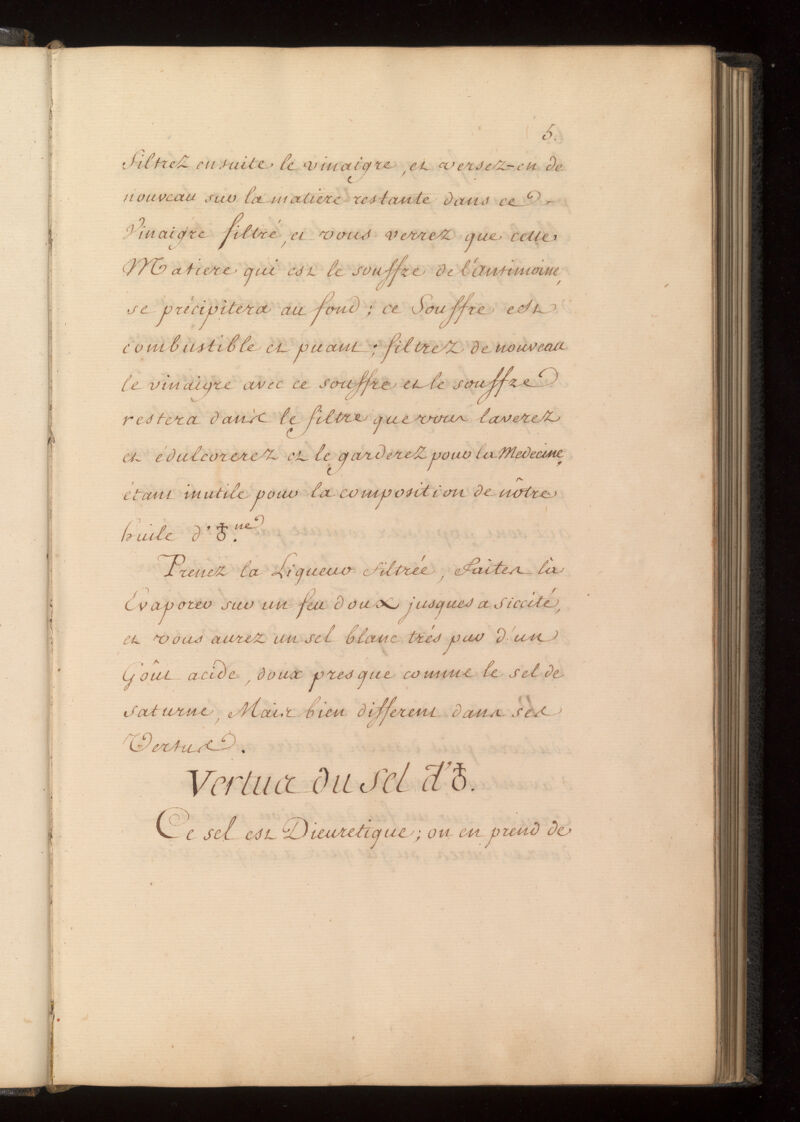 5.
filtrez ensuite le vinaigre, et versez-en de
nouveau sur la matiere restante dans ce
Vinaigre filtré, et vous verrez que cette
Matiere qui est le souffre de l'antimoine,
se précipitera au fond; ce Souffre est
combustible et puant; filtrez de nouveau
le vinaigre avec ce souffre et le souffre
restera dans le filtre que vous laverez
et édulcorerez et le garderez pour la Medecine,
étant inutile pour la composition de nôtre
huile d'♁.ne
Prenez la Liqueur filtrée, faites la
Evaporer sur un feu doux jusques a siccité,
et vous aurez un sel blanc trés pur d'un
Goût acide, doux presque comme le sel de
saturne, Mais bien different dans ses
Vertus.
Vertus du sel d'♁.
Ce sel est Dieuretique; on en prend de